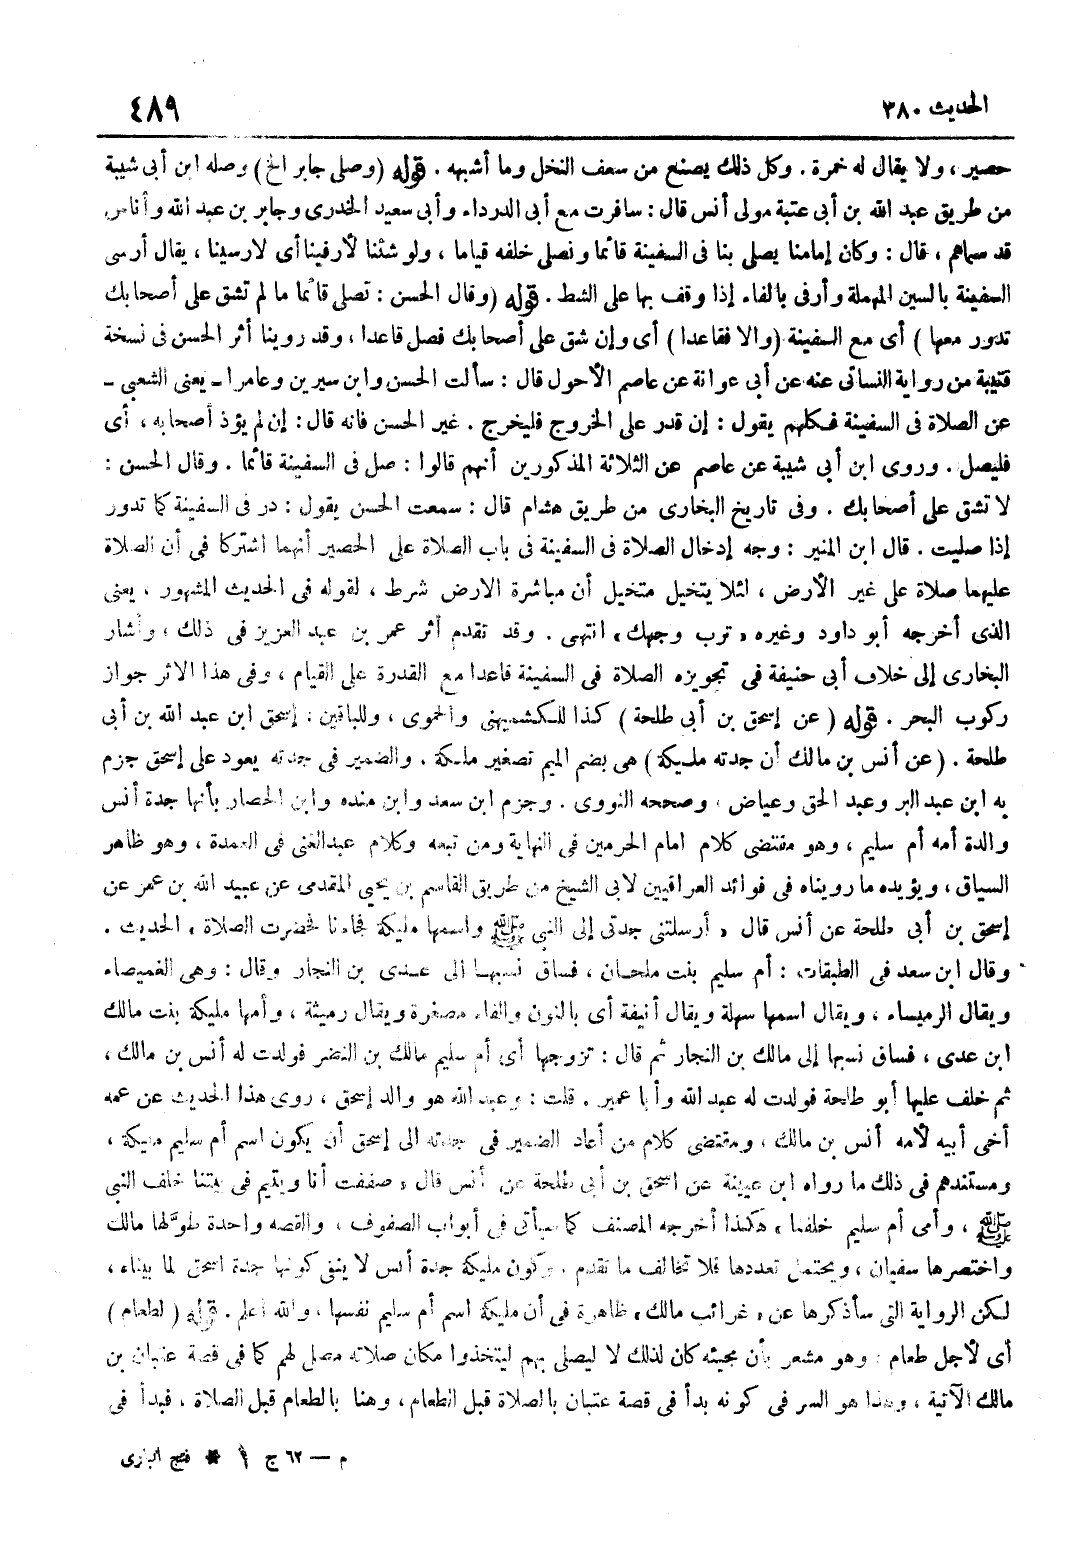 الحديث ٣٨٠
٤٨٩
حصير ، ولا يقال له خمرة . وكل ذلك يصنع من سعف النخل وما أشبهه . قوله ( وصلى جابر الخ ) وصله ابن أبى شيبة
من طريق عبد الله بن أبى عتبة مولى أنس قال : سافرت مع أبى الدرداء وأبى سعيد الخدرى وجابر بن عبد الله وأناس
قد سماهم ، قال : وكان إمامنا يصلى بنا فى السفينة قائما ونصلى خلفه قياما ، ولو شئنا لأرفينا أى لارسينا ، يقال أرسى
السفينة بالسين المهملة وأرفى بالفاء إذا وقف بها على الشط . قوله ( وقال الحسن : تصلى قائما ما لم تشق على أصحابك
تدور معها ) أى مع السفينة ( والا فقاعدا ) أى وإن شق على أصحابك فصل قاعدا ، وقد روينا أثر الحسن فى نسخة
قتيبة من رواية النسائى عنه عن أبى عوانة عن عاصم الأحول قال : سألت الحسن وابن سيرين وعامرا ـ يعنى الشعبى ـ
عن الصلاة فى السفينة فكلهم يقول : إن قدر على الخروج فليخرج . غير الحسن فانه قال : إن لم يؤذ أصحابه ، أى
فليصل . وروى ابن أبى شيبة عن عاصم عن الثلاثة المذكورين أنهم قالوا : صل فى السفينة قائما . وقال الحسن :
لا تشق على أصحابك . وفى تاريخ البخارى من طريق هشام قال : سمعت الحسن يقول : در فى السفينة كما تدور
إذا صليت . قال ابن المنير : وجه إدخال الصلاة فى السفينة فى باب الصلاة على الحصير أنهما اشتركا فى أن الصلاة
عليهما صلاة على غير الأرض ، لئلا يتخيل متخيل أن مباشرة الارض شرط ، لقوله فى الحديث المشهور ، يعنى
الذى أخرجه أبو داود وغيره « ترب وجهك » انتهى . وقد تقدم أثر عمر بن عبد العزيز فى ذلك ، وأشار
البخارى إلى خلاف أبى حنيفة فى تجويزه الصلاة فى السفينة قاعدا مع القدرة على القيام ، وفى هذا الاثر جواز
ركوب البحر . قوله ( عن إسحق بن أبى طلحة ) كذا للكشميهنى والحموى ، وللباقين : إسحق ابن عبد الله بن أبى
طلحة . ( عن أنس بن مالك أن جدته مليكة ) هى بضم الميم تصغير ملكة . والضمير فى جدته يعود على إسحق جزم
به ابن عبد البر وعبد الحق وعياض ، وصححه النووى . وجزم ابن سعد وابن منده وابن الحصار بأنها جدة أنس
والدة أمه أم سليم ، وهو مقتضى كلام امام الحرمين فى النهاية ومن تبعه وكلام عبدالغنى فى العمدة ، وهو ظاهر
السياق ، ويؤيده ما رويناه فى فوائد العراقيين لابى الشيخ من طريق القاسم بن يحيى المقدمى عن عبيد الله بن عمر عن
إسحق بن أبى طلحة عن أنس قال « أرسلتنى جدتى إلى النبى ﷺ واسمها مليكة فجاءنا فحضرت الصلاة » الحديث .
وقال ابن سعد فى الطبقات : أم سليم بنت ملحان ، فساق نسبها الى عدى بن النجار وقال : وهى الغميصاء
ويقال الرميساء ، ويقال اسمها سهلة ويقال أنيفة أى بالنون والفاء مصغرة ويقال رميثة ، وأمها مليكة بنت مالك
ابن عدى ، فساق نسبها إلى مالك بن النجار ثم قال : تزوجها أى أم سليم مالك بن النضر فولدت له أنس بن مالك ،
ثم خلف عليها أبو طلحة فولدت له عبد الله وأبا عمير . قلت : وعبد الله هو والد إسحق ، روى هذا الحديث عن عمه
أخى أبيه لأمه أنس بن مالك ، ومقتضى كلام من أعاد الضمير فى جدته الى إسحق أن يكون اسم أم سليم مليكة ،
ومستندهم فى ذلك ما رواه ابن عيينة عن اسحق بن أبى طلحة عن أنس قال « صففت أنا ويتيم فى بيتنا خلف النبى
ﷺ ، وأمى أم سليم خلفنا » هكذا أخرجه المصنف كما سيأتى فى أبواب الصفوف ، والقصه واحدة طولها مالك
واختصرها سفيان ، ويحتمل تعددها فلا تخالف ما تقدم . وكون مليكة جدة أنس لا ينفى كونها جدة اسحق لما بيناه ،
لكن الرواية التى سأذكرها عن « غرائب مالك » ظاهرة فى أن مليكة اسم أم سليم نفسها ، والله اعلم . قوله ( لطعام )
أى لأجل طعام ، وهو مشعر بأن مجيئه كان لذلك لا ليصلى بهم ليتخذوا مكان صلاته مصلى لهم كما فى قصة عتبان بن
مالك الآتية ، وهذا هو السر فى كونه بدأ فى قصة عتبان بالصلاة قبل الطعام ، وهنا بالطعام قبل الصلاة ، فبدأ فى
م — ٦٢ ج ١ * فتح البارى